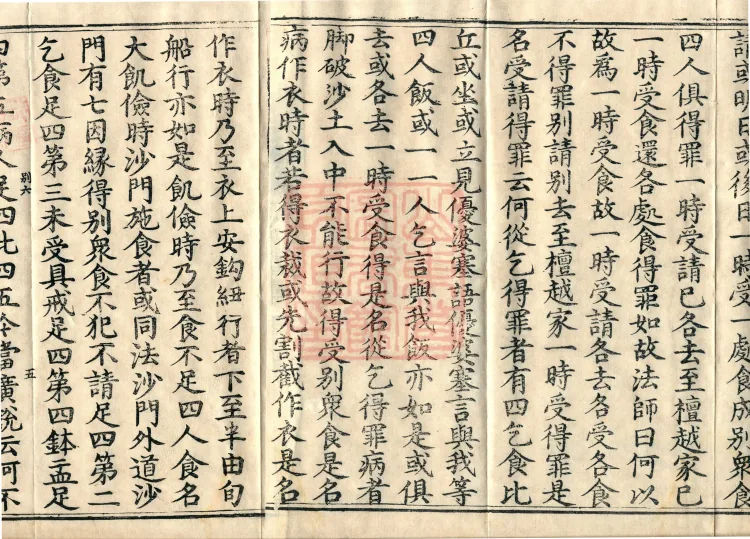 請或明日或後日一時受一處食成別衆食
四人俱得罪一時受請已各去至檀越家已
一時受食還各處食得罪如故法師曰何以
故爲一時受食故一時受請各去各受各食
不得罪別請別去至檀越家一時受得罪是
名受請得罪云何從乞得罪者有四乞食比
丘或坐或立見優婆塞語優婆塞言與我等
四人飯或一一人乞言與我飯亦如是或俱
去或各去一時受食得是名從乞得罪病者
脚破沙土入中不能行故得受別衆食是名
病作衣時者若得衣裁或先割截作衣是名
作衣時乃至衣上安鉤紐行者下至半由旬
船行亦如是飢儉時乃至食不足四人食名
大飢儉時沙門施食者或同法沙門外道沙
門有七因緣得別衆食不犯不請足四第二
乞食足四第三未受具戒足四第四鉢盂足
別六
五
四第五病人足四比四五今當廣說云何不